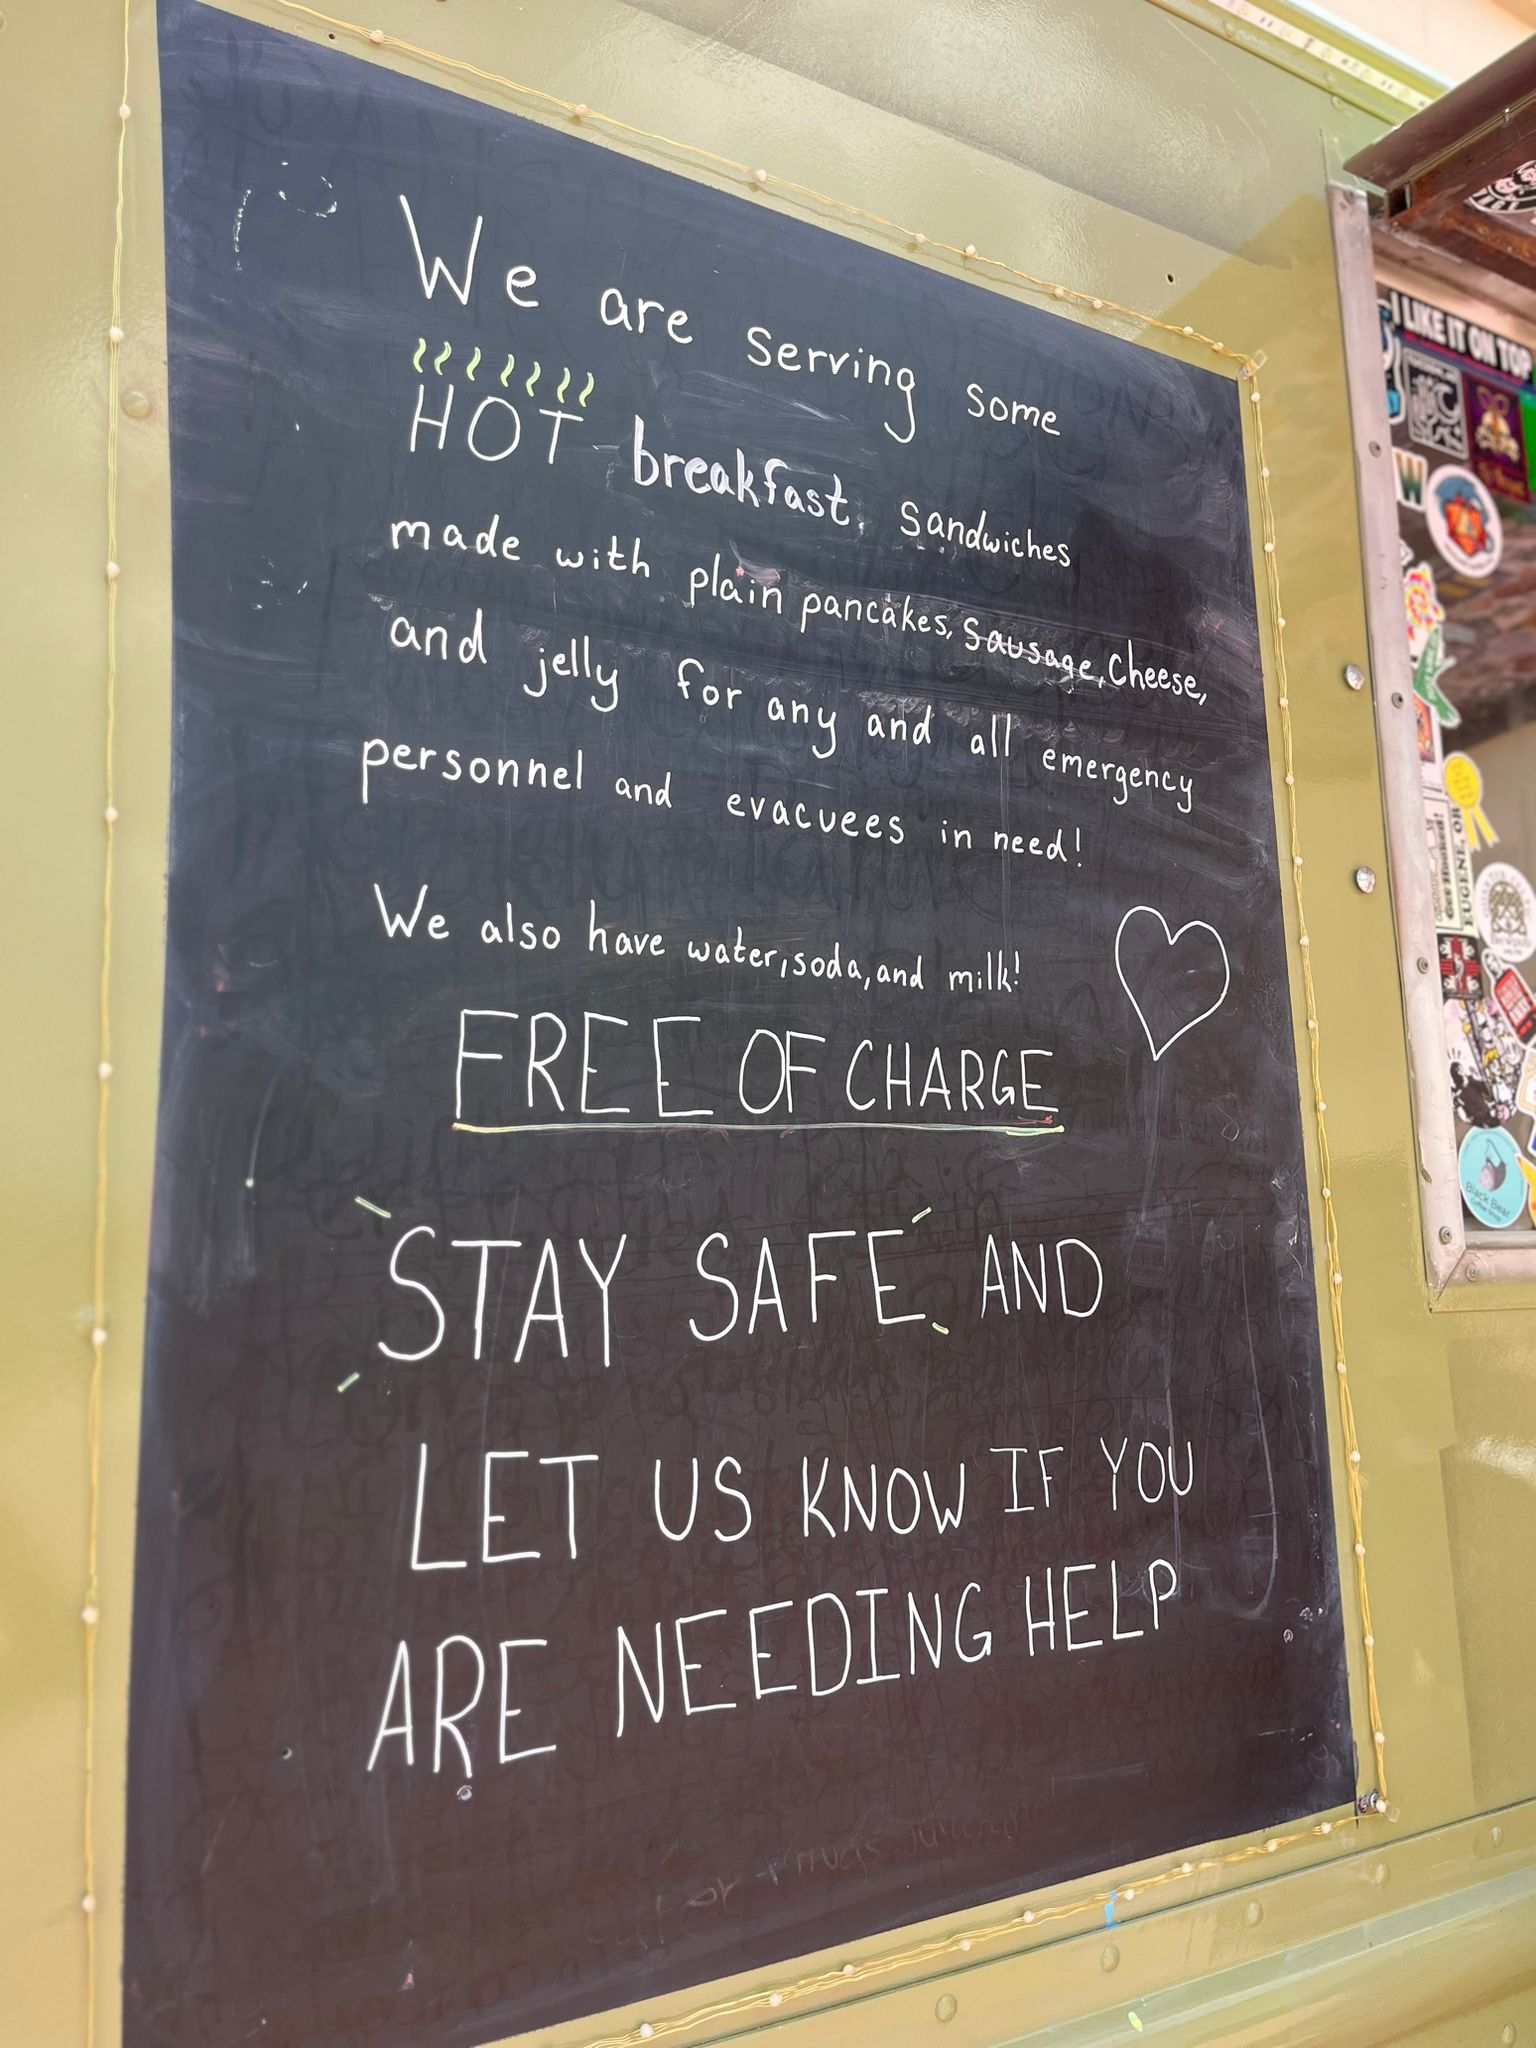 We are serving some
HOT breakfast, sandwiches
made with plain pancakes, sausage, cheese,
and jelly for any and all emergency
personnel and evacuees in need!
We also have water, soda, and milk!
FREE OF CHARGE
STAY SAFE AND
LET US KNOW IF YOU
ARE NEEDING HELP
I LIKE IT ON TOP
W
Get Hooked!
EUGENE, OR
Black Bear